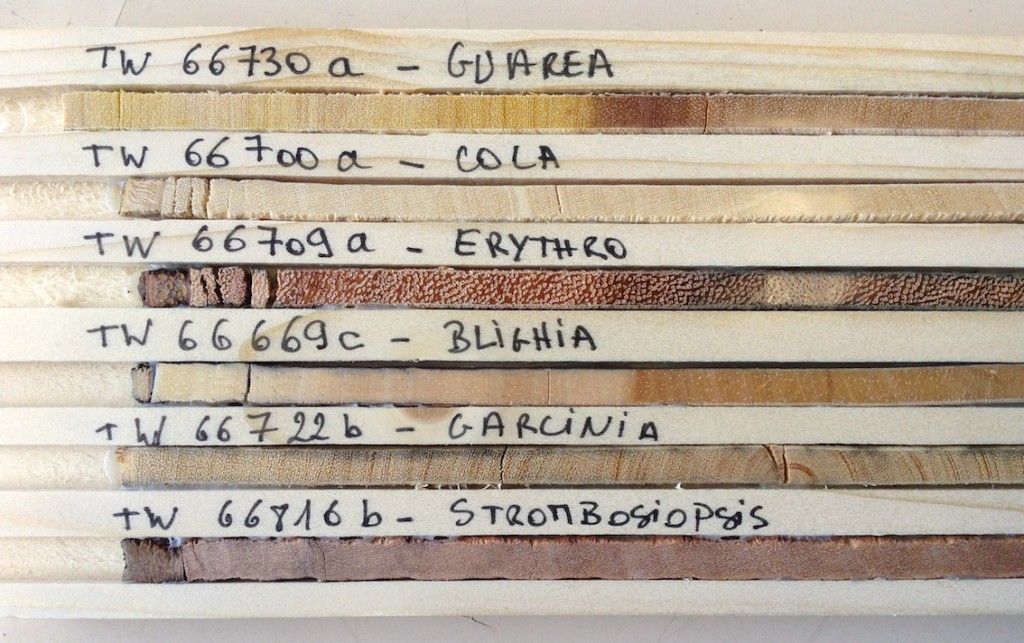 TW 66730 a - GUAREA
TW 66700 a - COLA
TW 66709 a - ERYTHRO
TW 66669 c - BLiGHiA
TW 66722 b - GARCiNiA
TW 66816 b - STROMBOSiOPSiS